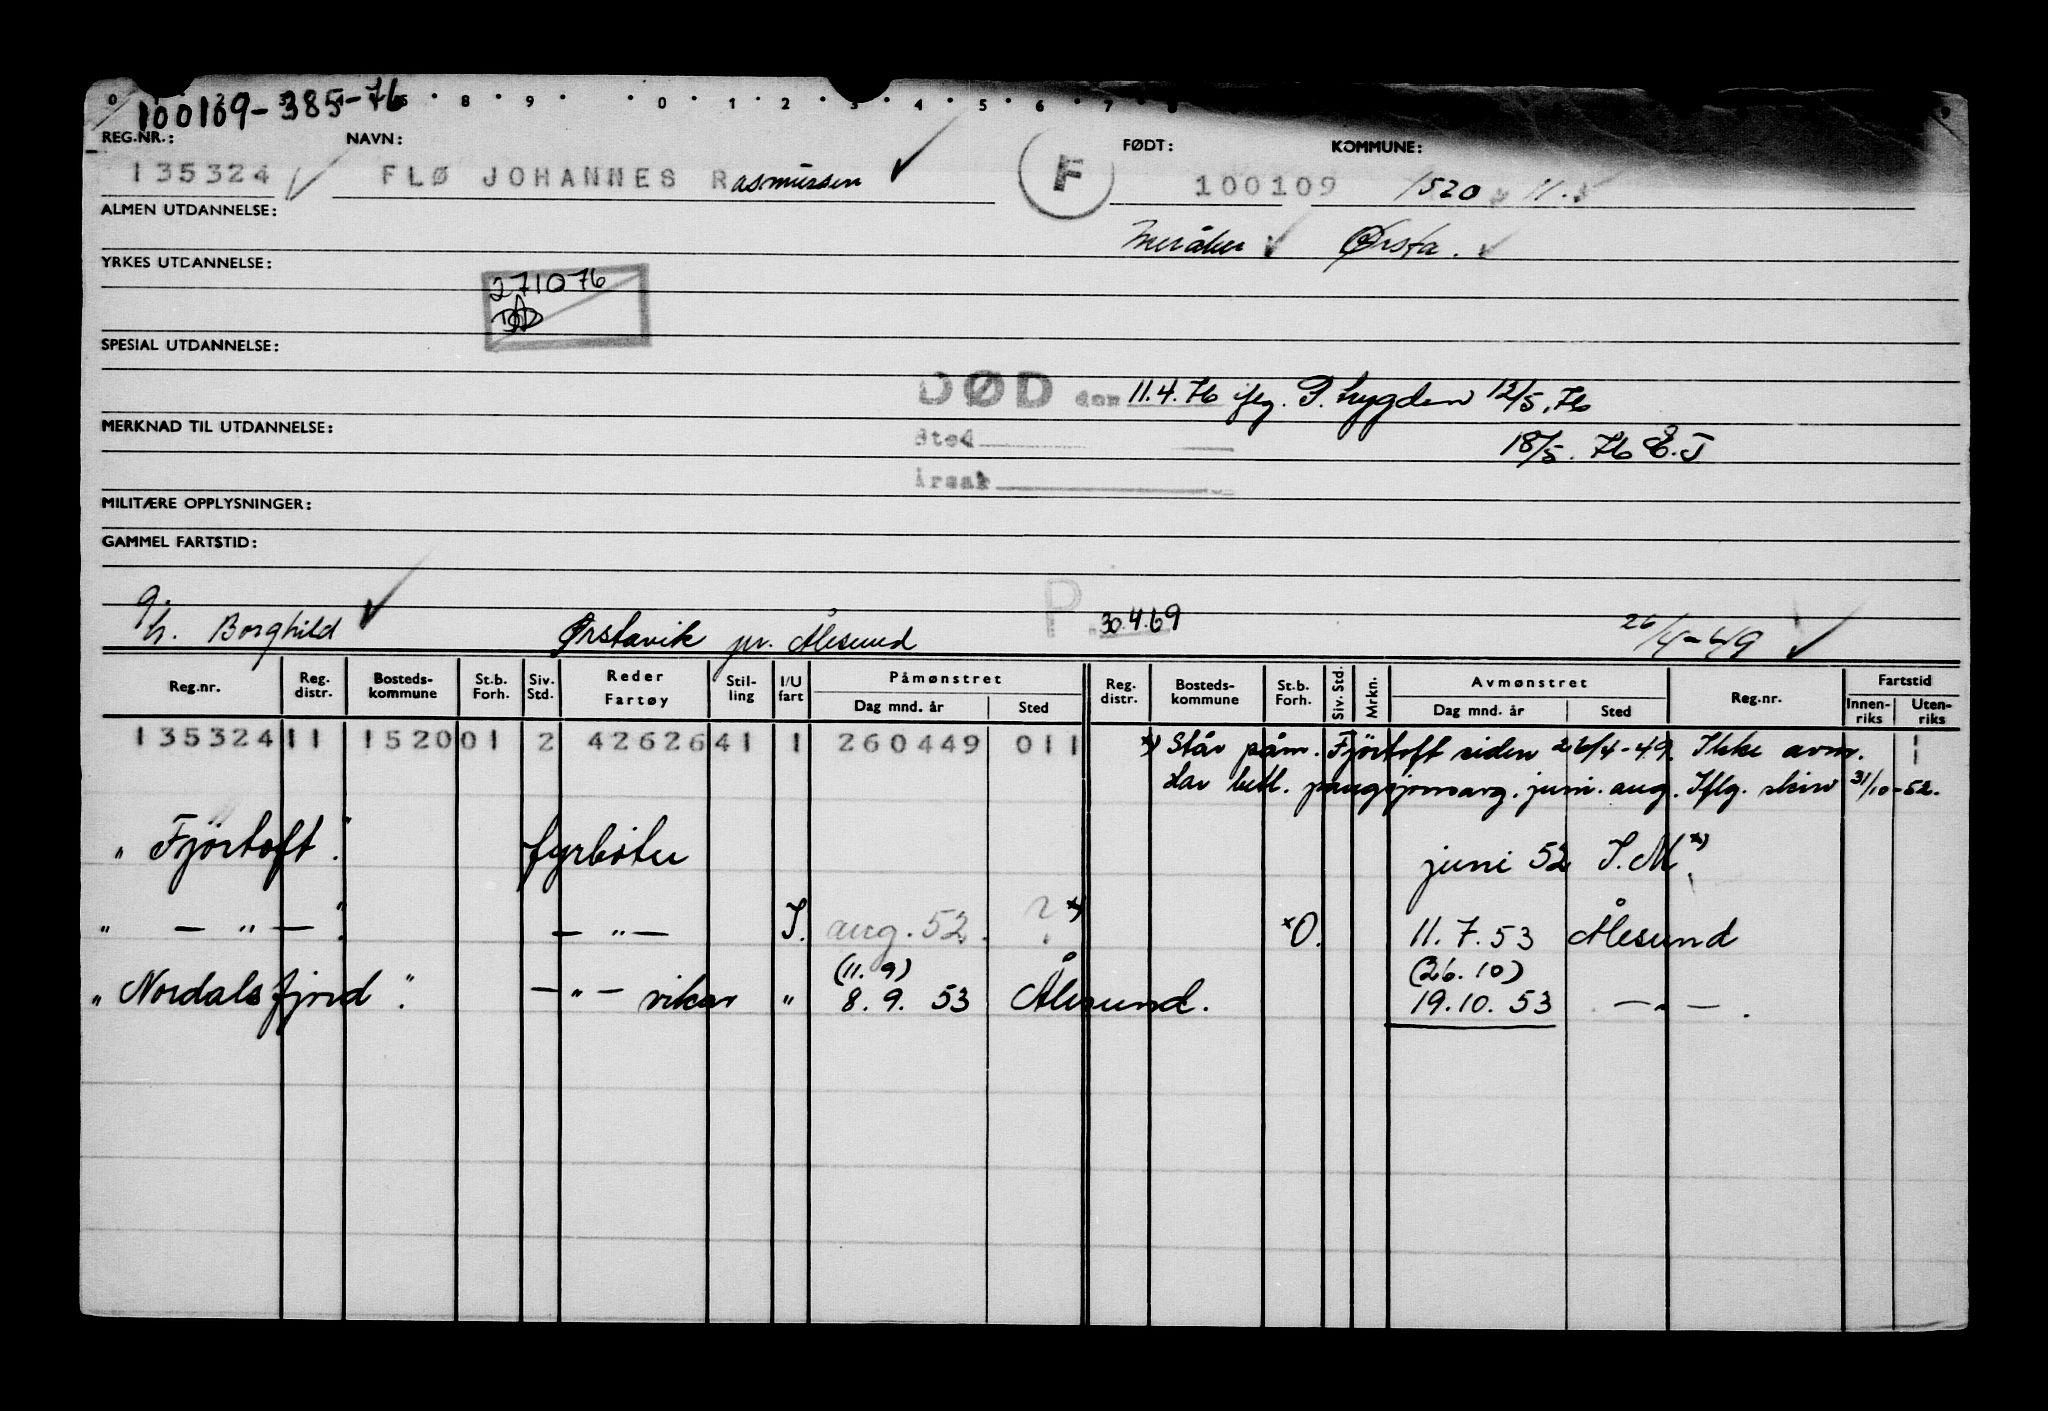 100109-385-76
0 8 9 0 1 2 3 4 5 6 7 8 9
REG.NR.: NAVN: FØDT: KOMMUNE:
135324 FLØ JOHANNES Rasmussen F 100109 1520 11.
ALMEN UTDANNELSE:
Meråker Ørsta.
YRKES UTDANNELSE:
271076
SPESIAL UTDANNELSE:
DØD den 11.4.76 iflg. P. Lygden 12/5.76
MERKNAD TIL UTDANNELSE:
Sted
18/5.76 E.J
Årsak
MILITÆRE OPPLYSNINGER:
GAMMEL FARTSTID:
g.
h. Borghild Ørstavik pr. Ålesund P 30.4.69 26/4-49
Reg.nr. Reg. distr. Bosteds-kommune St.b. Forh. Siv. Std. Reder Fartøy Stil-ling I/U fart Påmønstret Dag mnd. år Sted Reg. distr. Bosteds-kommune St.b. Forh. Siv. Std. Mrkn. Avmønstret Dag mnd. år Sted Reg.nr. Fartstid Innen-riks Uten-riks
135324 11 1520 01 2 42626 41 1 260449 011 x) Står påm. Fjörtoft siden 26/4-49. Ikke avm. 1
har betl. pensjonsavg. juni-aug. Iflg. skriv 31/10-52.
" Fjörtoft." fyrböter juni 52 I.M x)
" — " —." — " — I. aug. 52. ? x) xO. 11.7.53 Ålesund
(11.9) (26.10)
" Nordalsfjord." — " — vikar " 8.9.53 Ålesund. 19.10.53 — " —.